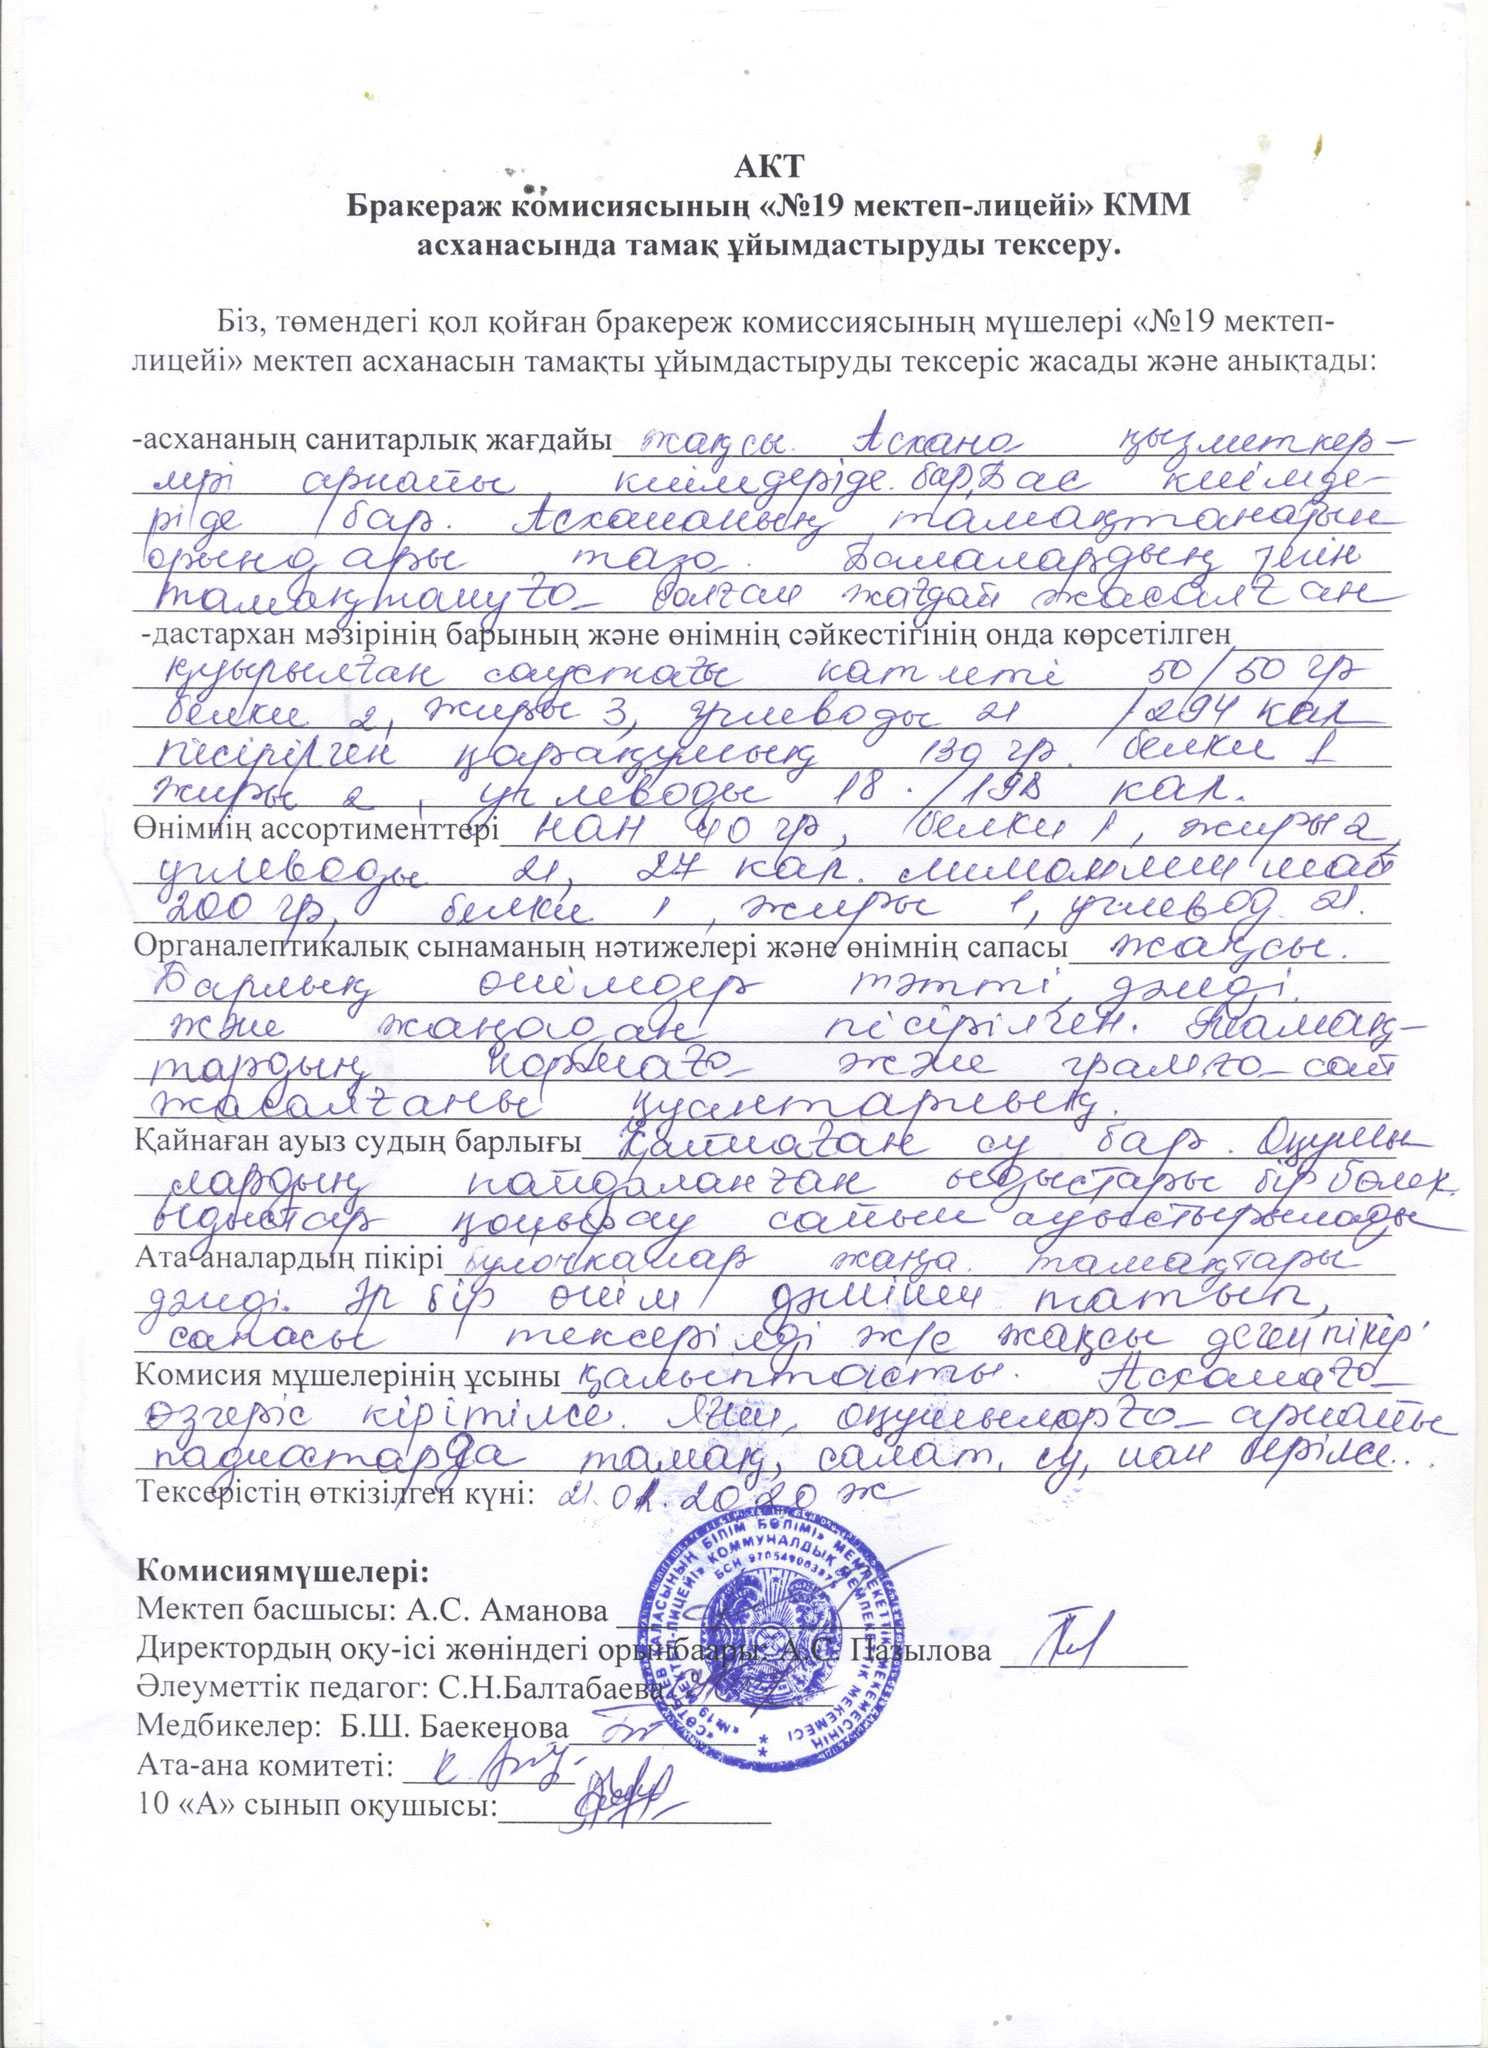 АКТ
Бракераж комисиясының «№19 мектеп-лицейі» КММ
асханасында тамақ ұйымдастыруды тексеру.
Біз, төмендегі қол қойған бракереж комиссиясының мүшелері «№19 мектеп-
лицейі» мектеп асханасын тамақты ұйымдастыруды тексеріс жасады және анықтады:
-асхананың санитарлық жағдайы жақсы. Асхана қызметкер-
лері арнайы киімдеріде бар, Бас киімде-
ріде бар. Асхананың тамақтанатын
орындары таза. Балалардың үшін
тамақтануға болған жағдай жасалған
-дастархан мәзірінің барының және өнімнің сәйкестігінің онда көрсетілген
қуырылған соустағы катлеті 50/50 гр
белки 2, жиры 3, углеводы 21 /294 кал
пісірілген қарақұмық 130 гр. белки 1
жиры 2, углеводы 18. /198 кал.
Өнімнің ассортименттері нан 40 гр, белки 1, жиры 2,
углеводы 21, 27 кал. лимонмен шай
200 гр, белки 1, жиры 1, углевод. 21.
Органалептикалық сынаманың нәтижелері және өнімнің сапасы жақсы.
Барлық өнімдер тәтті, дәмді.
және жаңадан пісірілген. Тамақ-
тардың нормаға және грамға сай
жасалғаны қуантарлық.
Қайнаған ауыз судың барлығы Қайнаған су бар. Оқушы-
лардың пайдаланған ыдыстары бір бөлек.
ыдыстар қоңырау сайын ауыстырылады
Ата-аналардың пікірі булочкалар жаңа. тамақтары
дәмді. Әр бір өнім дәмінен татып,
сапасы тексерілді ж/е жақсы деген пікір
Комисия мүшелерінің ұсыны қалыптасты. Асханаға
өзгеріс кіргізілсе. Яғни, оқушыларға арнайы
падностарда тамақ, салат, су, нан берілсе..
Тексерістің өткізілген күні: 21.01.2020 ж
Комисиямүшелері:
Мектеп басшысы: А.С. Аманова
Директордың оқу-ісі жөніндегі орынбаары: А.С. Пазылова
Әлеуметтік педагог: С.Н.Балтабаева
Медбикелер: Б.Ш. Баекенова
Ата-ана комитеті:
10 «А» сынып оқушысы:
«СӘТБАЕВ ҚАЛАСЫНЫҢ БІЛІМ БӨЛІМІ» МЕМЛЕКЕТТІК МЕКЕМЕСІНІҢ
«№19 МЕКТЕП-ЛИЦЕЙІ» КОММУНАЛДЫҚ МЕМЛЕКЕТТІК МЕКЕМЕСІ